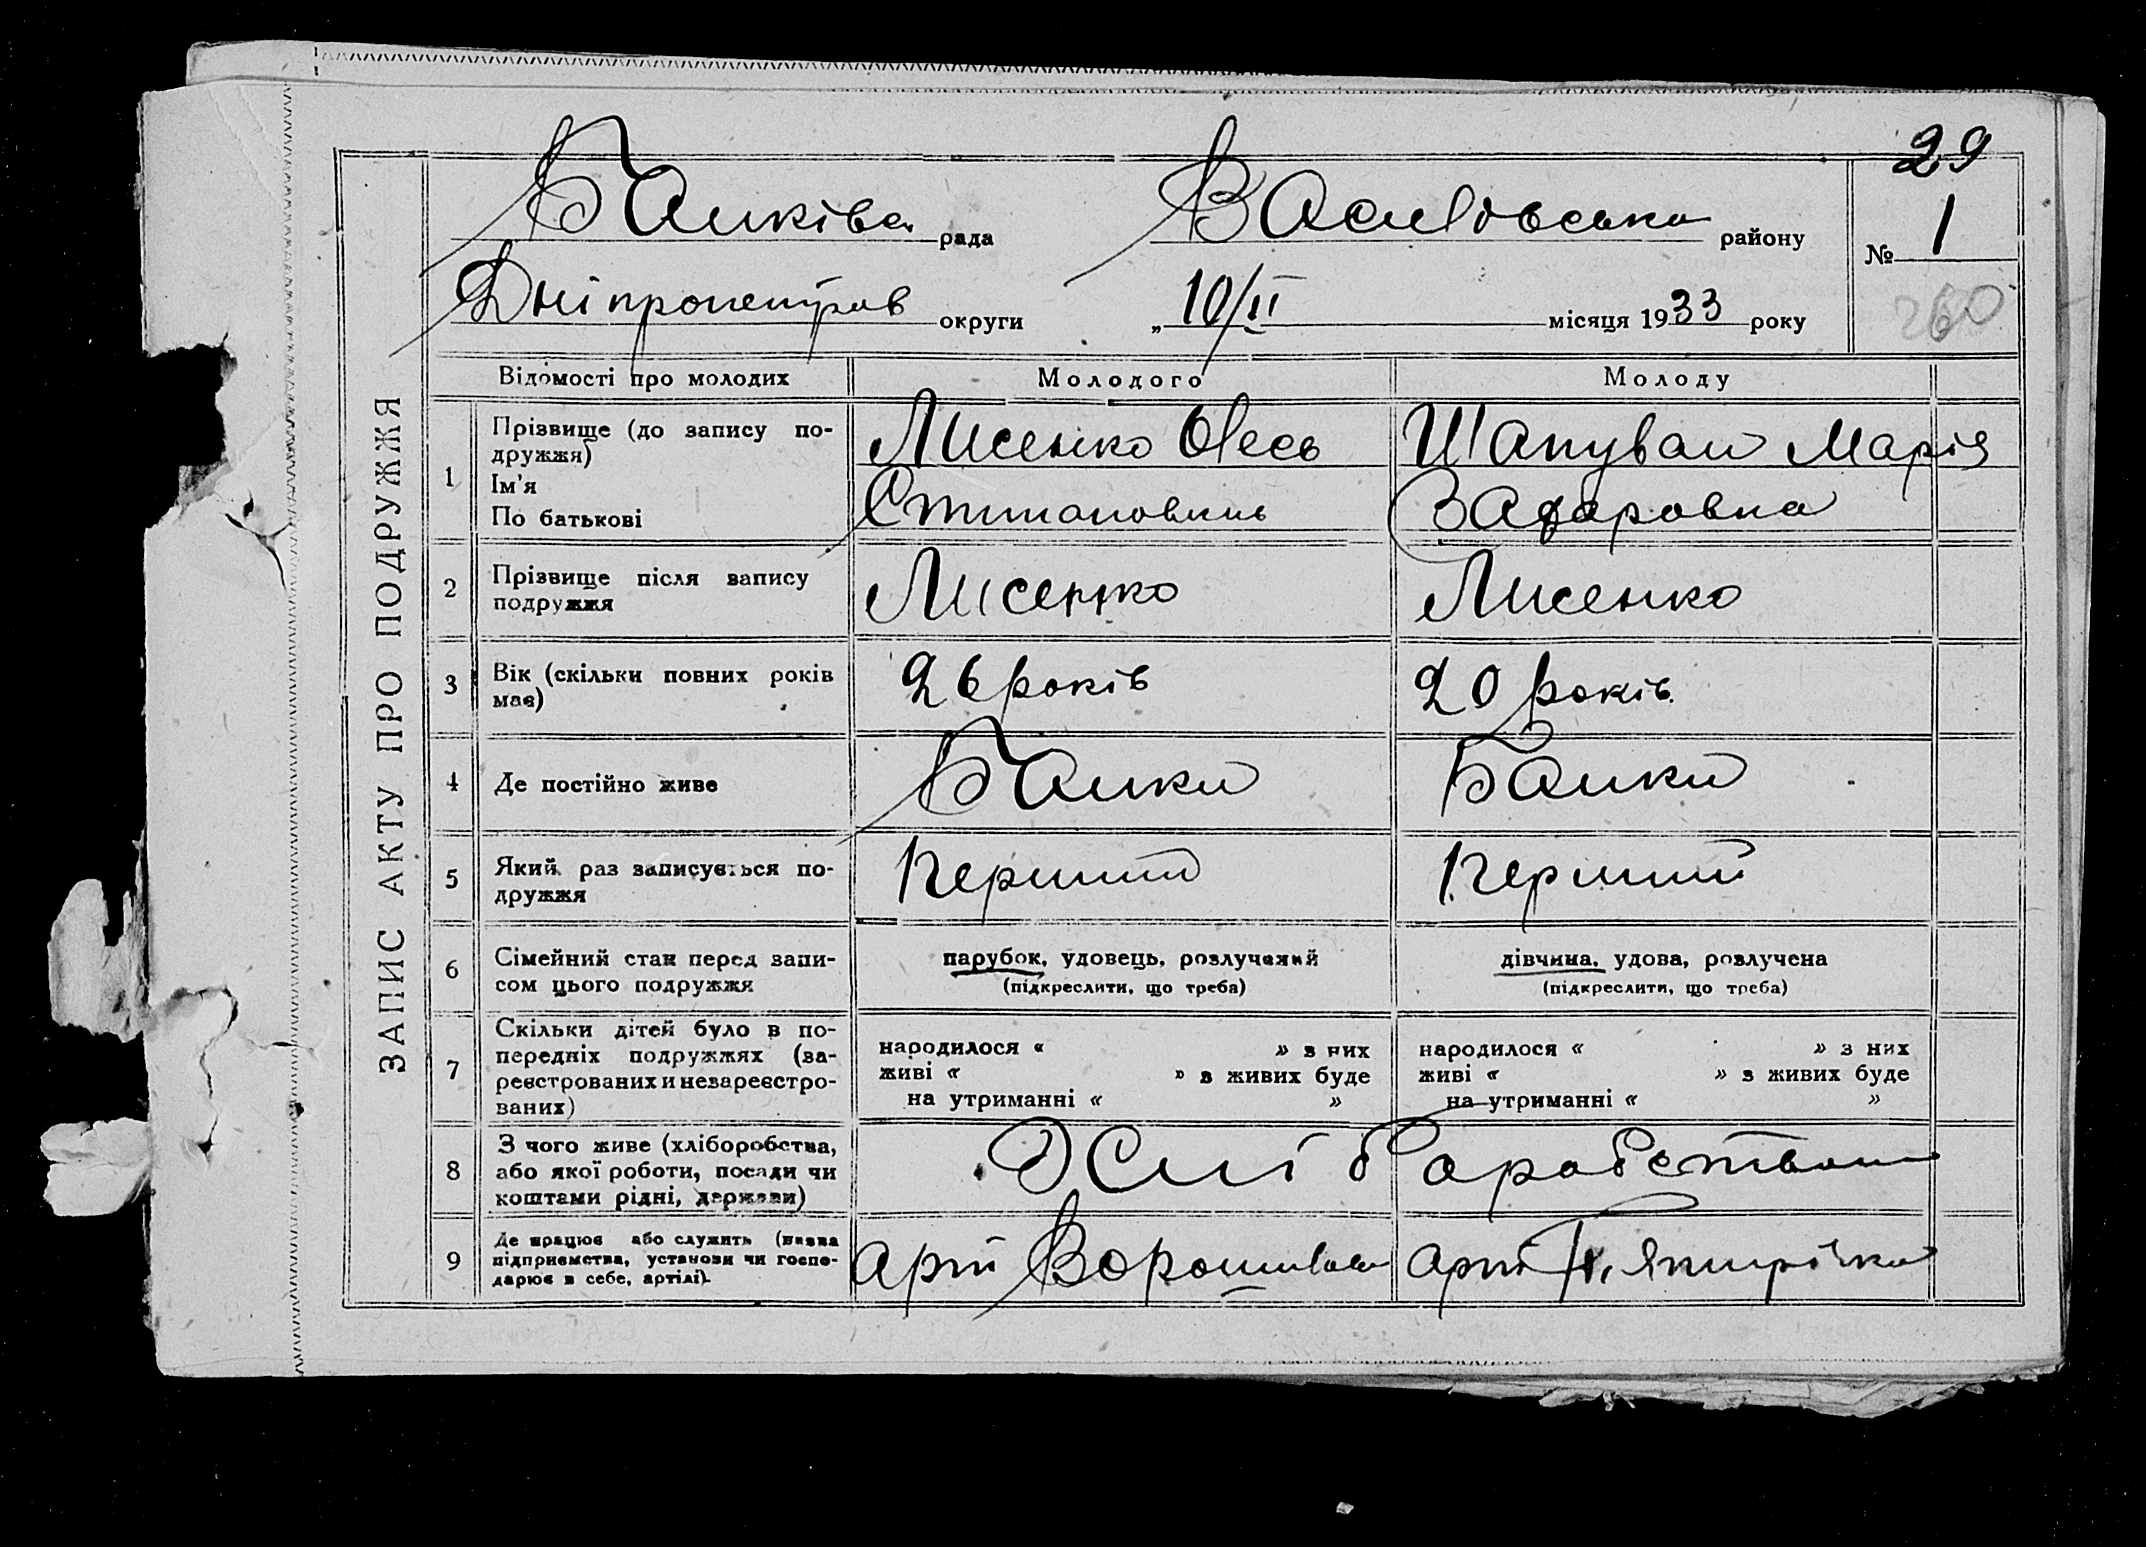 29
Банківа рада Василівська району № 1
Дніпропетров округи „10/II місяця 1933 року
260
ЗАПИС АКТУ ПРО ПОДРУЖЖЯ
Відомості про молодих Молодого Молоду
1 Прізвище (до запису по-
дружжя)
Ім'я
По батькові
Лисенко Олесь
Степанович
Шапувал Марія
Захаровна
2 Прізвище після запису
подружжя
Лисенко Лисенко
3 Вік (скільки повних років
має)
26 років 20 років
4 Де постійно живе Балки Балки
5 Який раз записується по-
дружжя
Перший Перший
6 Сімейний стан перед запи-
сом цього подружжя
парубок, удовець, розлучений
(підкреслити, що треба)
дівчина, удова, розлучена
(підкреслити, що треба)
7 Скільки дітей було в по-
передніх подружжях (за-
реєстрованих и незареєстро-
ваних)
народилося « » з них
живі « » з живих буде
на утриманні « »
народилося « » з них
живі « » з живих буде
на утриманні « »
8 З чого живе (хліборобства,
або якої роботи, посади чи
коштами рідні, держави)
Хліборобством
9 Де працює або служить (назва
підприємства, установи чи госпо-
дарює в себе, артілі).
арт Ворошилова арт